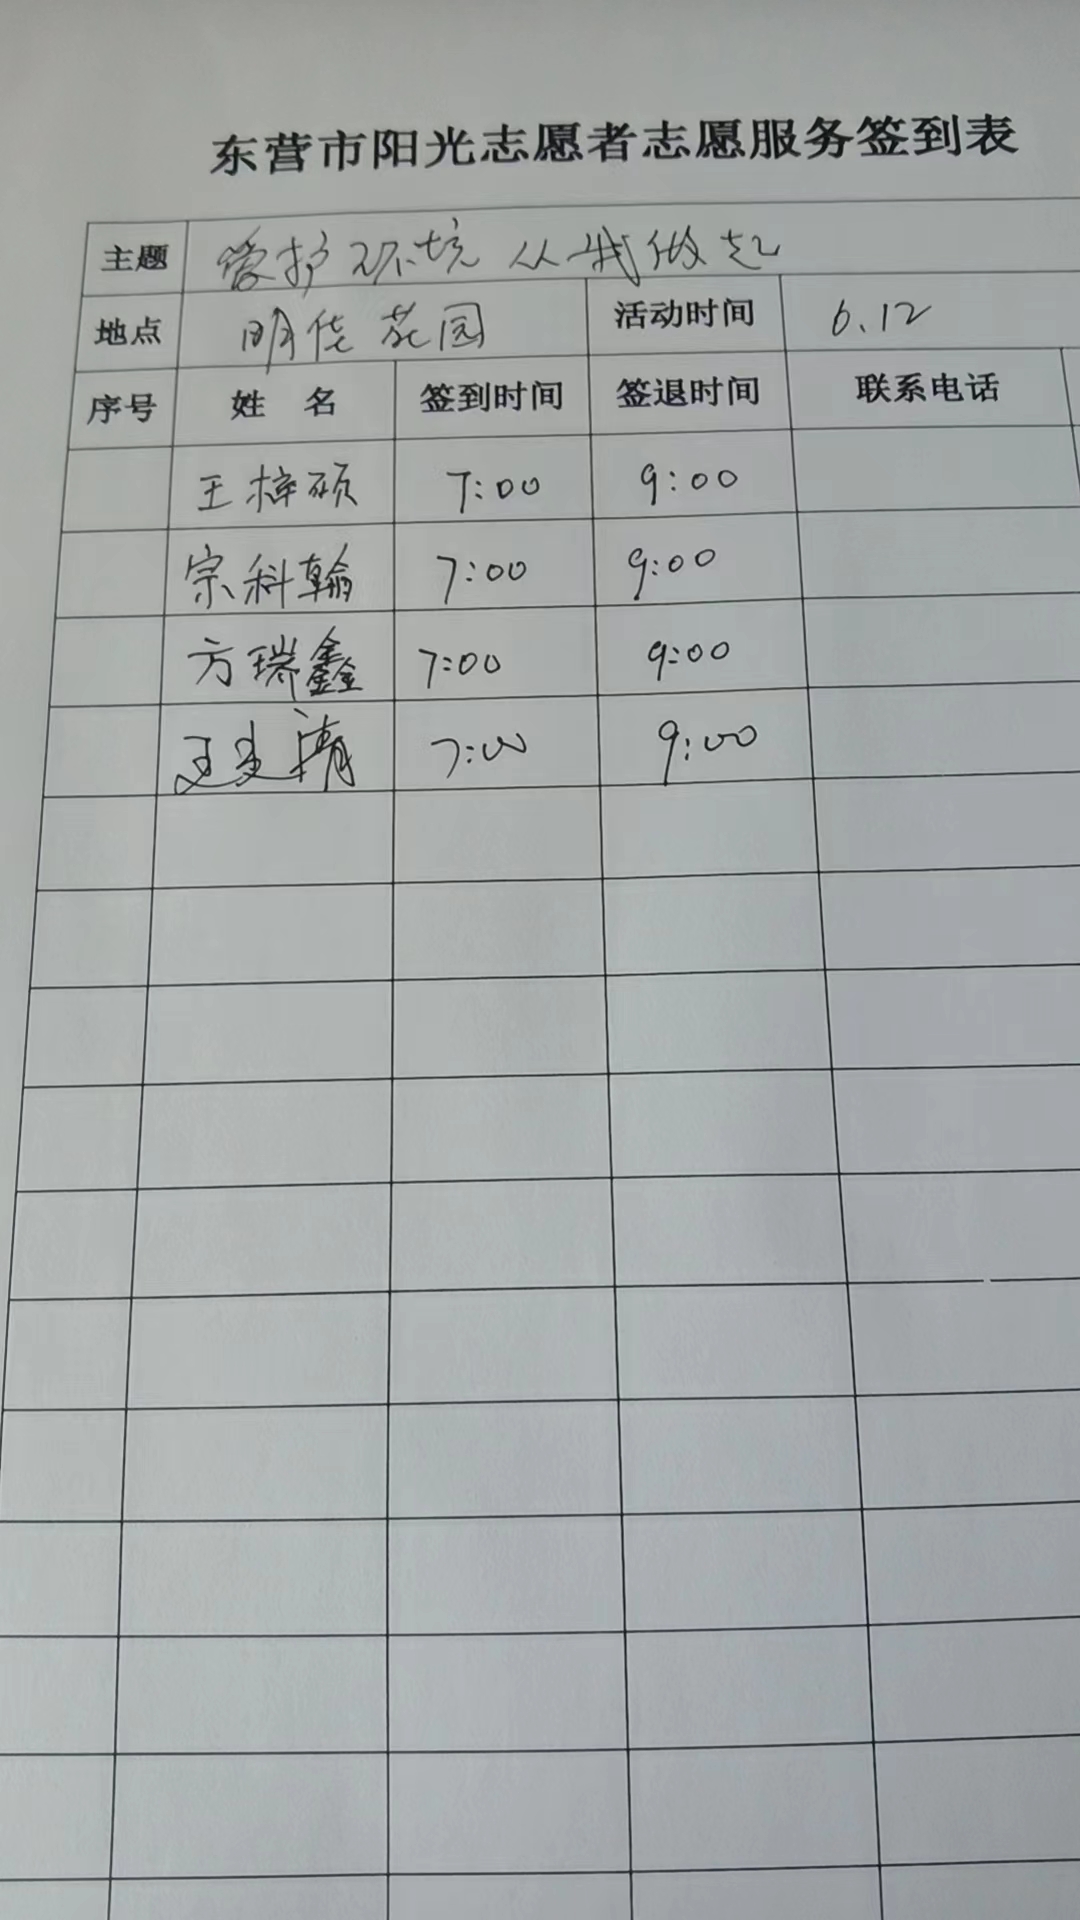 东营市阳光志愿者志愿服务签到表
主题 爱护环境 从我做起
地点 明佳花园 活动时间 6.12
序号 姓 名 签到时间 签退时间 联系电话
王梓硕 7:00 9:00
宗科翰 7:00 9:00
方瑞鑫 7:00 9:00
7:00 9:00